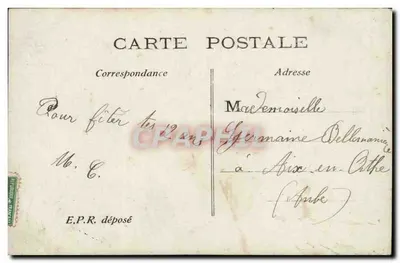 CARTE POSTALE
Correspondance
Adresse
Mademoiselle
Pour fêter tes 12 ans
Germaine Dellemanière
à Aix en Othe
(Aube)
M. C.
E.P.R. déposé